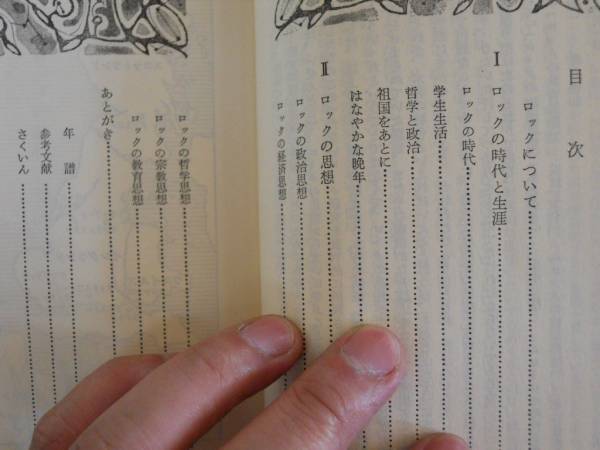 目次
ロックについて
Ⅰ ロックの時代と生涯
ロックの時代
学生生活
哲学と政治
祖国をあとに
はなやかな晩年
Ⅱ ロックの思想
ロックの政治思想
ロックの経済思想
ロックの哲学思想
ロックの宗教思想
ロックの教育思想
あとがき
年譜
参考文献
さくいん